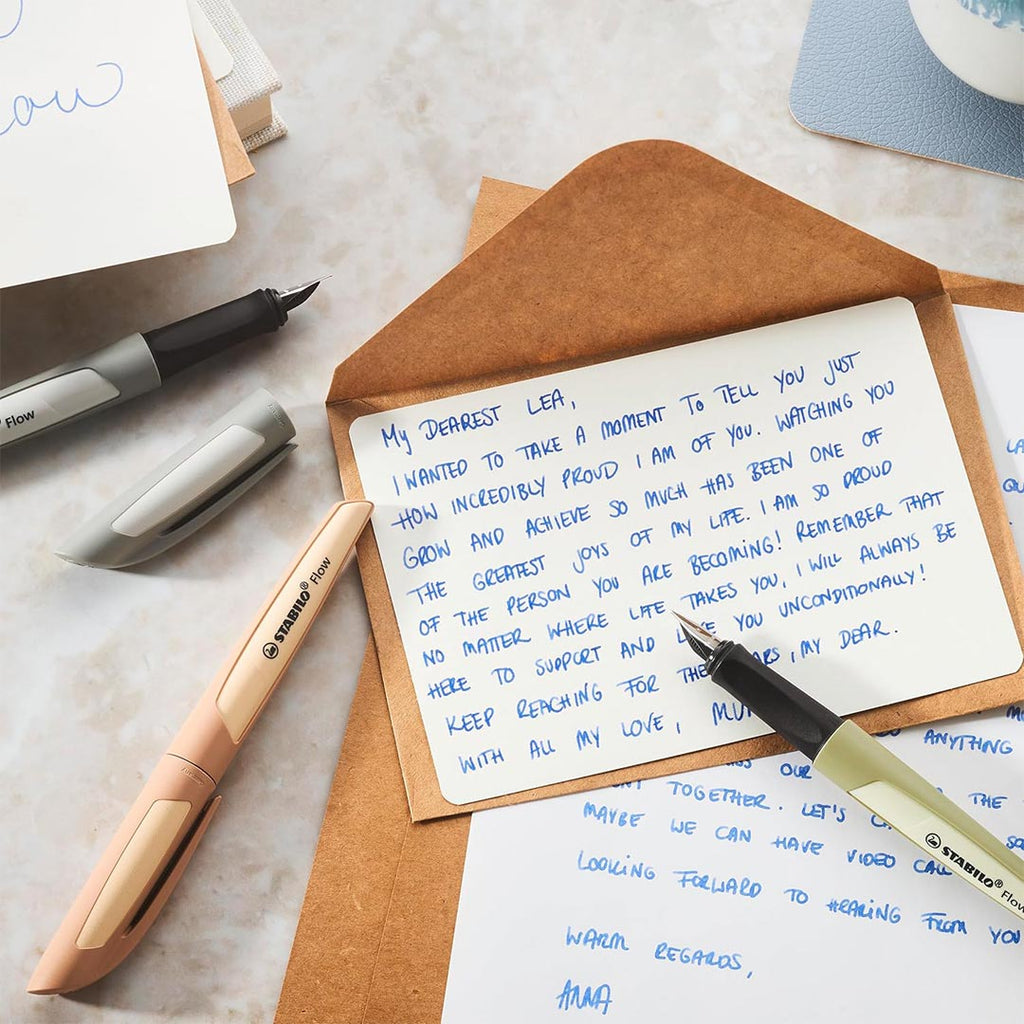 ow
Flow
STABILO® Flow
My DEAREST LEA,
I WANTED TO TAKE A MOMENT TO TELL YOU JUST
HOW INCREDIBLY PROUD I AM OF YOU. WATCHING YOU
GROW AND ACHIEVE SO MUCH HAS BEEN ONE OF
THE GREATEST JOYS OF MY LIFE. I AM SO PROUD
OF THE PERSON YOU ARE BECOMING! REMEMBER THAT
NO MATTER WHERE LIFE TAKES YOU, I WILL ALWAYS BE
HERE TO SUPPORT AND YOU UNCONDITIONALLY!
KEEP REACHING FOR , MY DEAR.
WITH ALL MY LOVE,
ANYTHING
OUR THE
TOGETHER. LET'S
MAYBE WE CAN HAVE VIDEO
LOOKING FORWARD TO HEARING FROM YOU
WARM REGARDS,
ANNA
STABILO® Flow